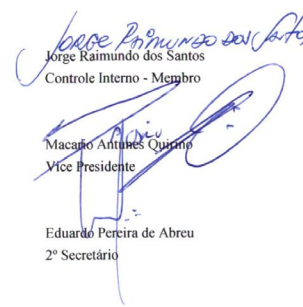 JORGE RAIMUNDO DOS SANTOS
Jorge Raimundo dos Santos
Controle Interno - Membro
Macario Antunes Quirino
Vice Presidente
Eduardo Pereira de Abreu
2º Secretário